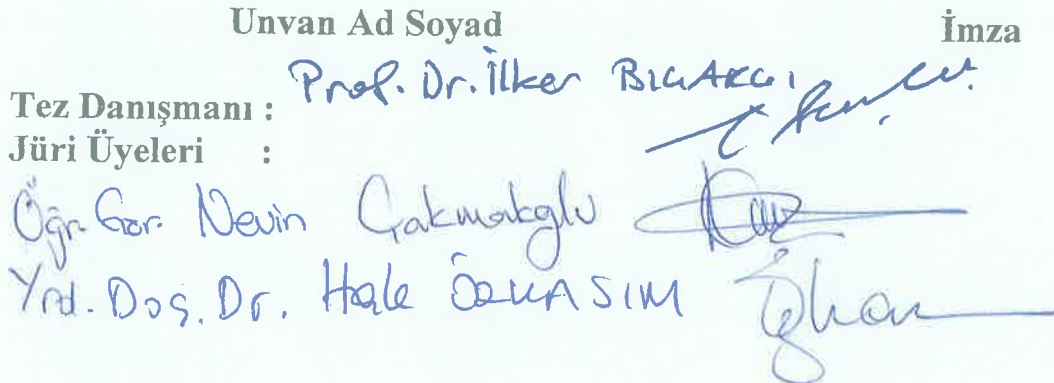 Unvan Ad Soyad İmza
Tez Danışmanı : Prof. Dr. İlker BIÇAKÇI
Jüri Üyeleri :
Öğr. Gör. Nevin Çakmakoğlu
Yrd. Doç. Dr. Hale ÖZKASIM